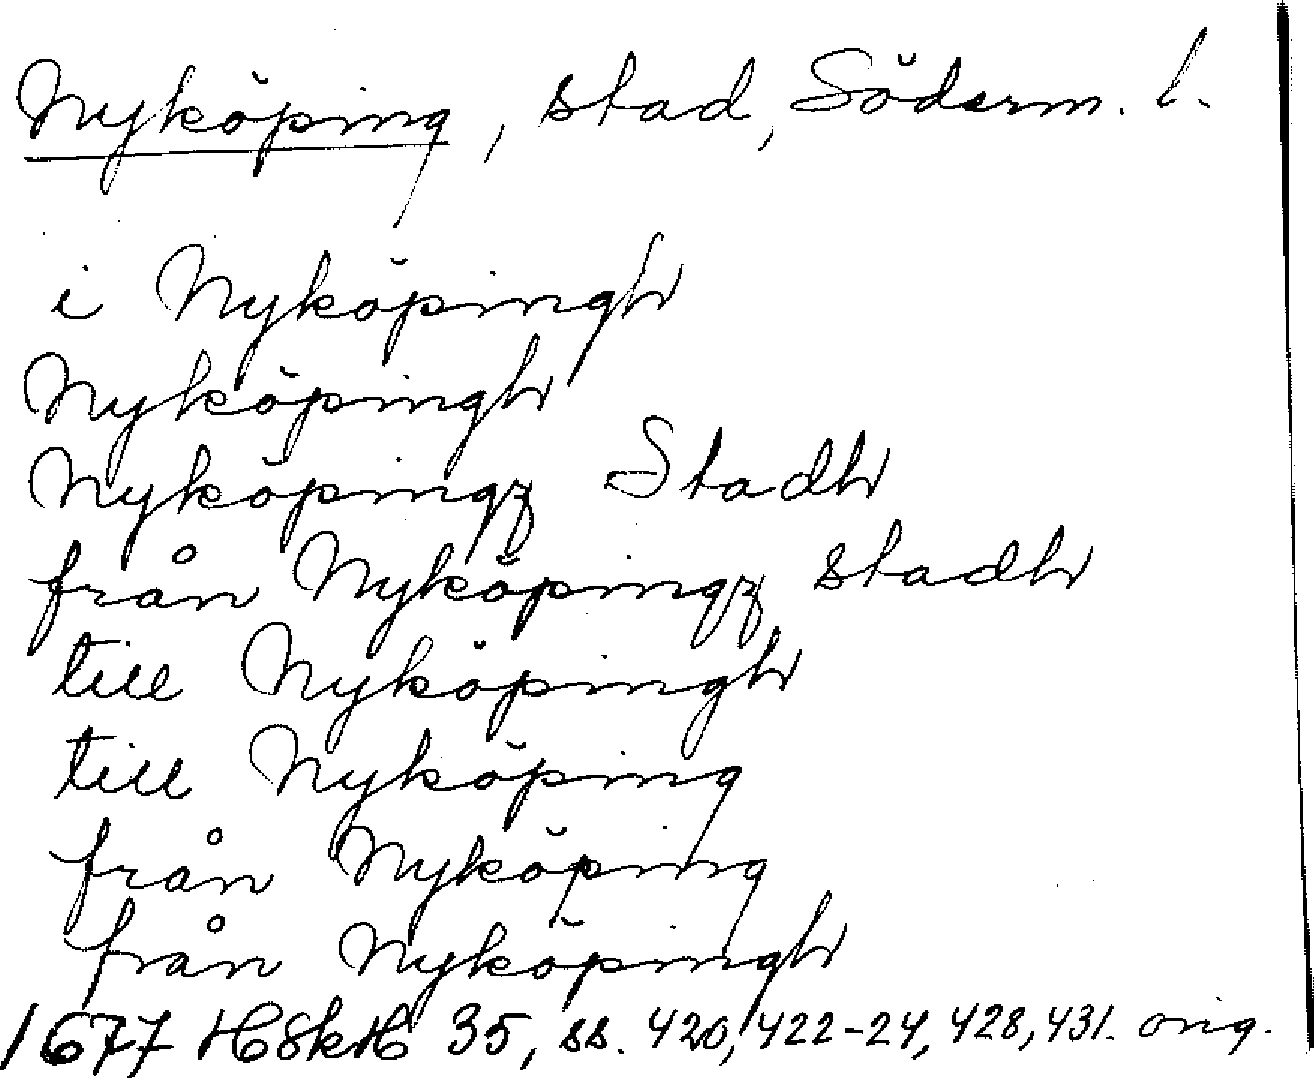 Nyköping, stad, Söderm. l.
i Nyköpingh
Nyköpingh
Nyköpingz Stadh
från Nyköpingz stadh
till Nyköpingh
till Nyköping
från Nyköping
från Nyköpingh
1677 HSkH 35, ss. 420, 422-24, 428, 431. orig.